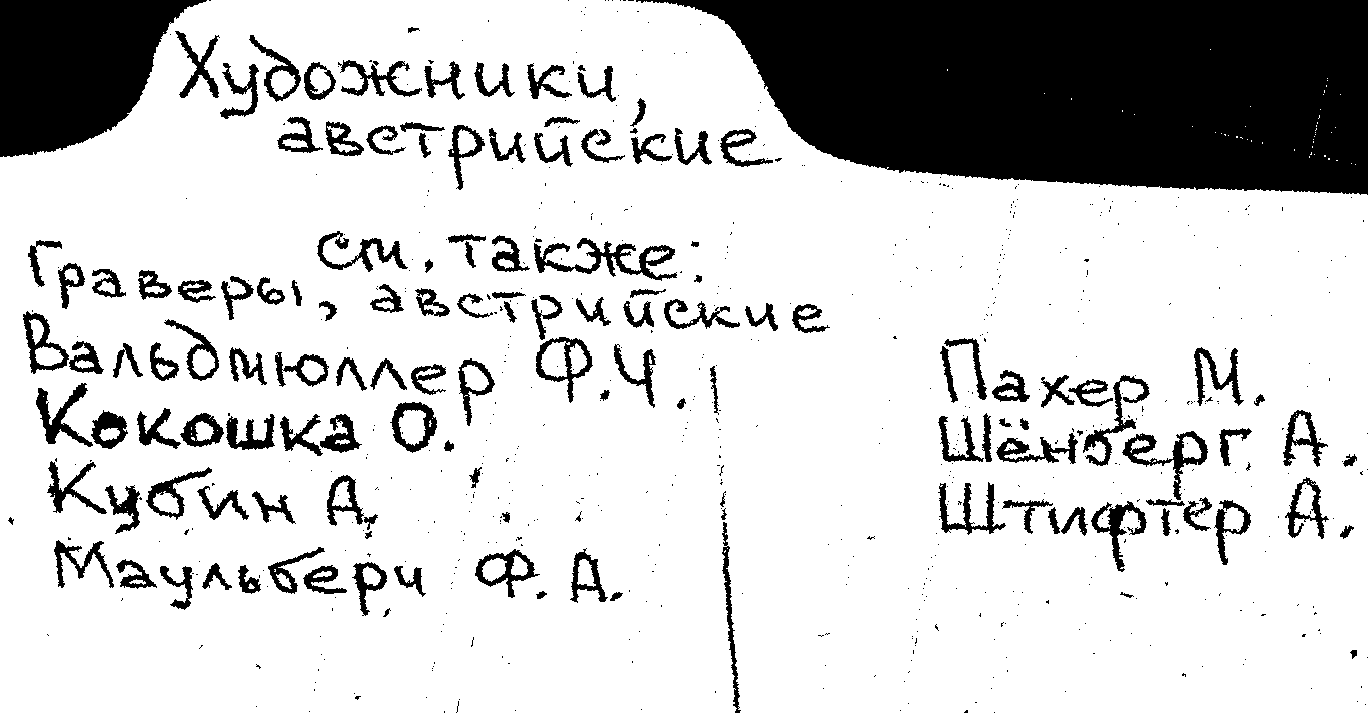 Художники,
австрийские
см. также:
Граверы, австрийские
Вальдмюллер Ф.Ч.
Кокошка О.
Кубин А.
Маульберч Ф.А.
Пахер М.
Шёнберг А.
Штифтер А.